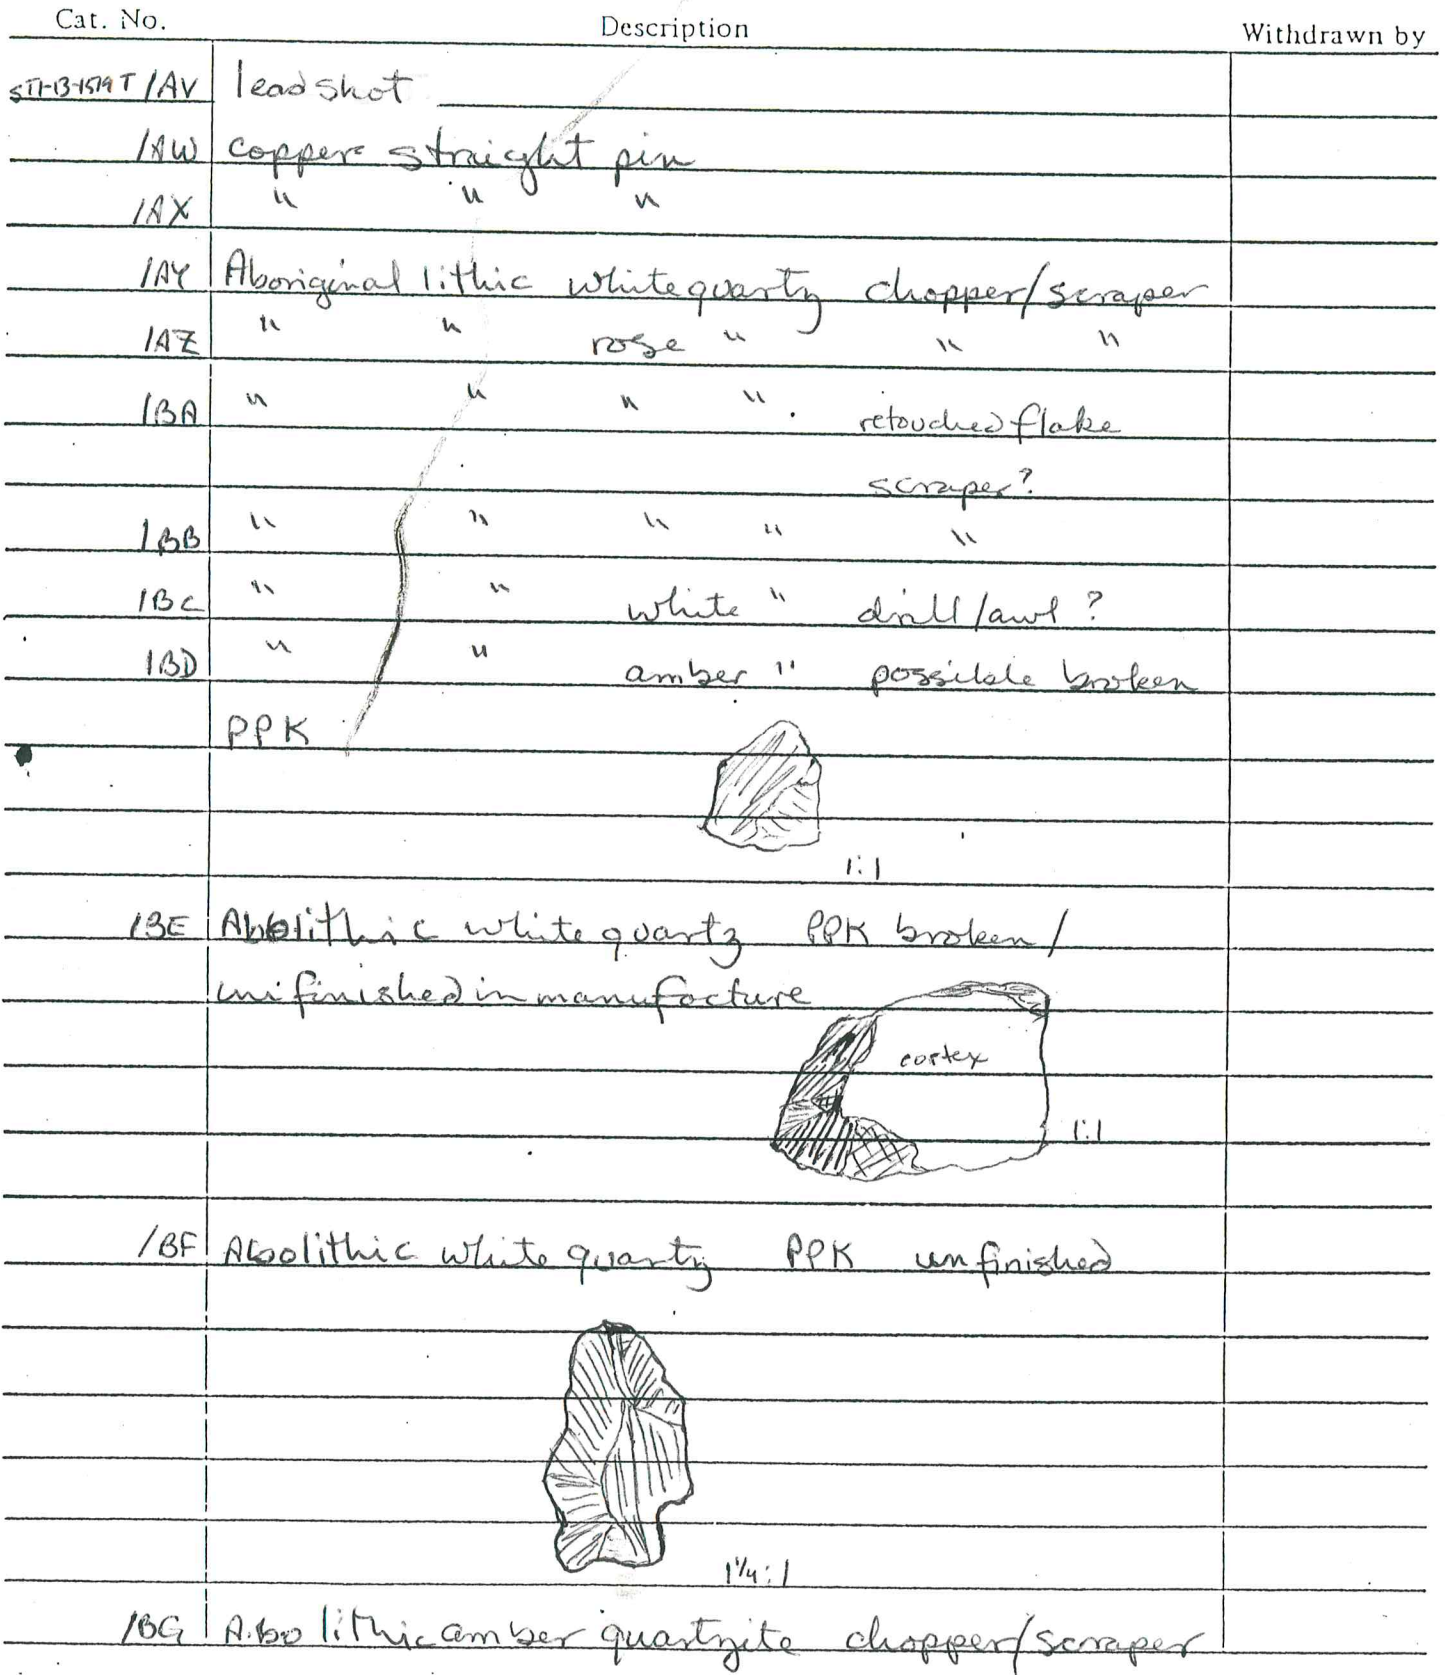 Cat. No. Description Withdrawn by
ST1-13-1579T /AV lead shot
/AW copper straight pin
/AX " " "
/AY Aboriginal lithic white quartz chopper/scraper
/AZ " " rose " " "
/BA " " " " . retouched flake
scraper?
/BB " " " " "
/BC " " white " drill/awl ?
/BD " " amber " possible broken
PPK
1:1
/BE Abolithic white quartz PPK broken/
unifinished in manufacture
cortex
1:1
/BF Abolithic white quartz PPK unfinished
1 1/4:1
/BG Abo lithic amber quartzite chopper/scraper